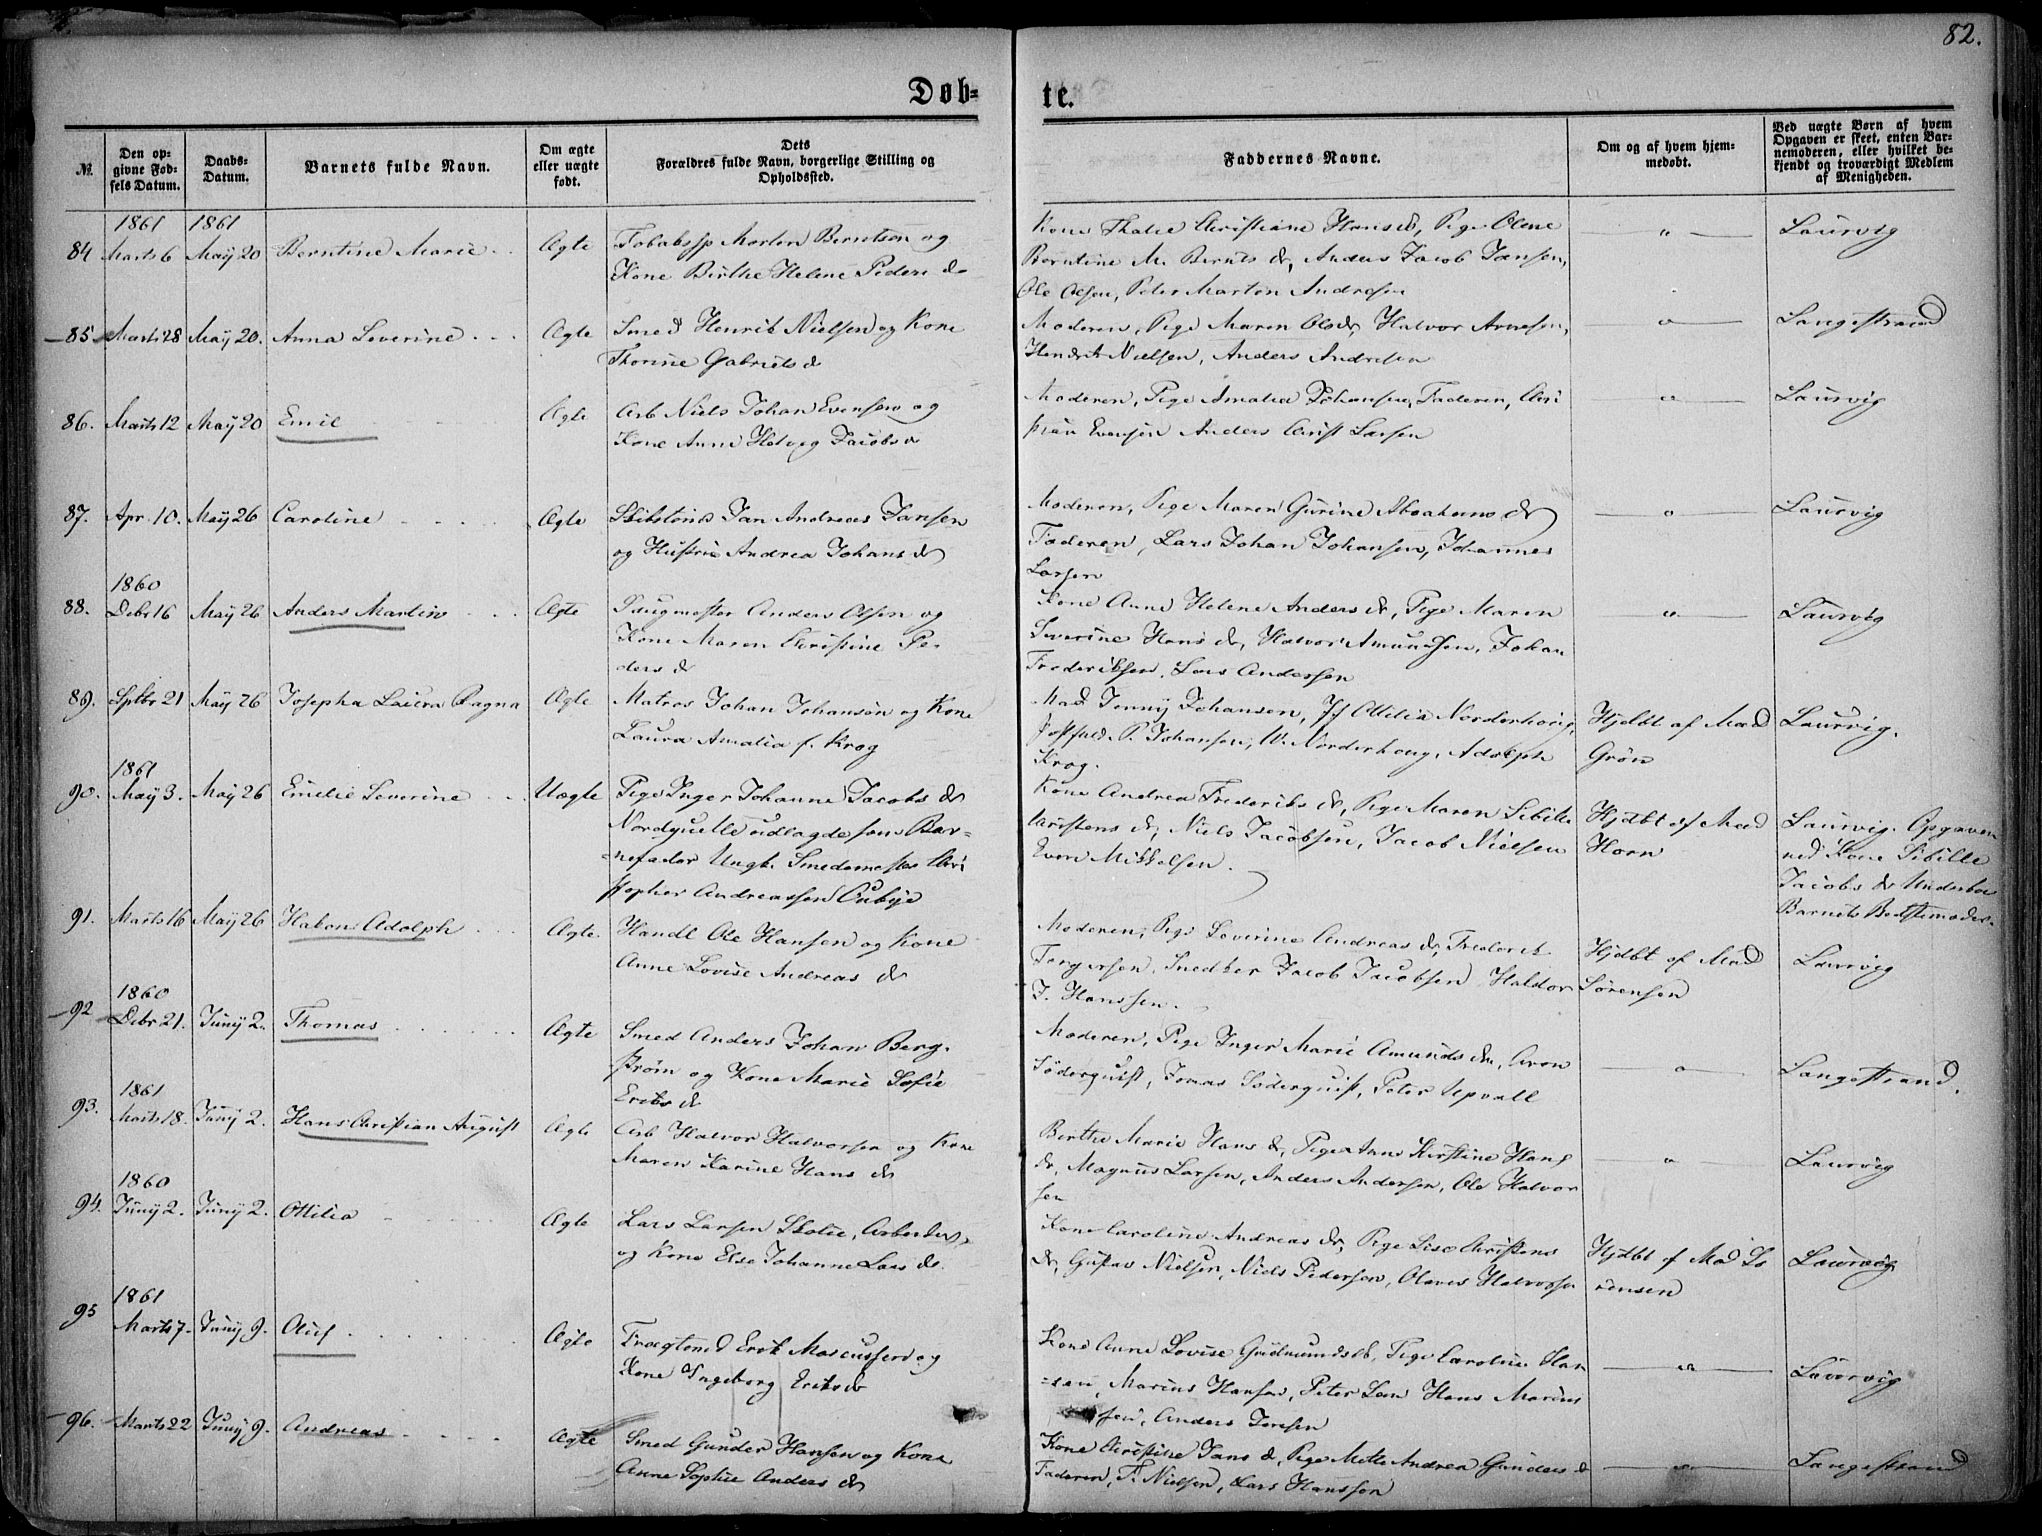 82.
Døb=
te.
№
Den op=
givne Fød=
fels Datum.
Daabs=
Datum.
Barnets fulde Navn.
Om ægte
eller uægte
født.
Dets
Forældres fulde Navn, borgerlige Stilling og
Opholdssted.
Faddernes Navne.
Om og af hvem hjem=
medøbt.
Ved uægte Børn af hvem
Opgaven er skeet, enten Bar=
nemoderen, eller hvilket be=
kjendt og troværdigt Medlem
af Menigheden.
1861 1861
84 Marts 6 May 20 Berntine Marie Ægte Tobaksp Morten Berntsen og
Kone Birthe Helene Peders d
Kone Thalie Christiane Hans d, Pige Olene
Berntine M. Bernts d, Anders Jacob Jansen,
Ole Olsen, Peter Marten Andresen
" Laurvig
85 Marts 28 May 20. Anna Severine Ægte Smed Henrik Nielsen og Kone
Thorine Gabriels d
Moderen, Pige Maren Olsd, Halvor Arnesen,
Hendrik Nielsen, Anders Andresen
" Langestrand
86. Marts 12 May 20 Emil Ægte Arb Niels Johan Evensen og
Kone Anne Hedvig Jacobs d
Moderen, Pige Amalia Johansen, Faderen, Chri
stian Evensen Anders Christ Larsen
" Laurvig
87. Apr. 10. May 26 Caroline Ægte Skibstømd Jan Andreas Jansen
og Hustrue Andrea Johans d
Moderen, Pige Maren Gurine Abrahams d
Faderen, Lars Johan Johansen, Johannes
Larsen
" Laurvig
1860
88. Debr 16 May 26 Anders Martin Ægte Saugmester Anders Olsen og
Kone Maren Christine Pe-
ders d
Kone Anne Helene Anders d, Pige Maren
Severine Hans d, Halvor Amundsen, Johan
Frederiksen, Lars Andersen
" Laurvig
89. Sptbr 21 May 26 Josepha Laura Ragna Ægte Matros Johan Johansen og Kone
Laura Amalia f. Krog
Mad Jenny Johansen, Jf Ottilia Norderhoug,
P. Johansen, W. Norderhoug, Adolph
Krog.
Hjdbt af Mad
Grøn
Laurvig.
1861
90. May 3. May 26 Emelie Severine Uægte Pige Inger Johanne Jacobs d
Nordquelle udlagde som Bar=
=nefader Ungk. Smedemester Chri
stopher Andreassen Aubye
Kone Andrea Frederiks d, Pige Maren Sibille
Christens d, Niels Jacobsen, Jacob Nielsen
Even Mikkelsen.
Hjdbt af Mad
Horn
Laurvig. Opgaven
ved Kone Sibille
Jacobs d
Barnets Bedstemoder.
91. Marts 16 May 26 Hakon Adolph Ægte. Handl Ole Hansen og Kone
Anne Lovise Andreas d
Moderen, Pige Severine Andreas d, Frederik
Torgersen, Snedker Jacob Jacobsen Haldor
J. Hanssen.
Hjdbt af Mad
Sørensen
Laurvig
1860
92 Debr 21. Juny 2. Thomas Ægte Smed Anders Johan Berg-
strøm og Kone Marie Sofie
Eriks d
Moderen, Pige Inger Marie Amunds d, Aron
Søderquist, Jonas Søderquist, Peter Upvall
" Langestrand.
1861
93. Marts 18. Juny 2. Hans Christian August Ægte Arb Halvor Halvorsen og Kone
Maren Karine Hans d
Birthe Marie Hans d, Pige Anne Kirstine Hans
d, Magnus Larsen, Anders Andersen, Ole Halvor
sen
" Laurvig
1860
94. Juny 2. Juny 2. Ottilia Ægte Lars Larsen Skolie, Arbeider
og Kone Else Johanne Lars d.
Kone Caroline Andreas d, Pige Lise Christens
d, Gustav Nielsen, Niels Pedersen, Olaves Halvorsen
Hjdbt af Mad Sø
rensen
Laurvig
1861
95 Marts 7. Juny 9. Oluf Ægte Fragtemd Erik Marcussen og
Kone Ingeborg Eriksd
Kone Anne Lovise Gudmundsd, Pige Caroline Han
=sen, Marius Hansen, Peter Hans Marius
sen, Anders Jensen
" Laurvig
96. Marts 22 Juny 9. Andreas Ægte Smed Gunder Hansen og Kone
Anne Sophie Anders d
Kone Christine Jans d, Pige Mette Andrea Gunders d
Faderen, F. Nielsen, Lars Hanssen
" Langestrand